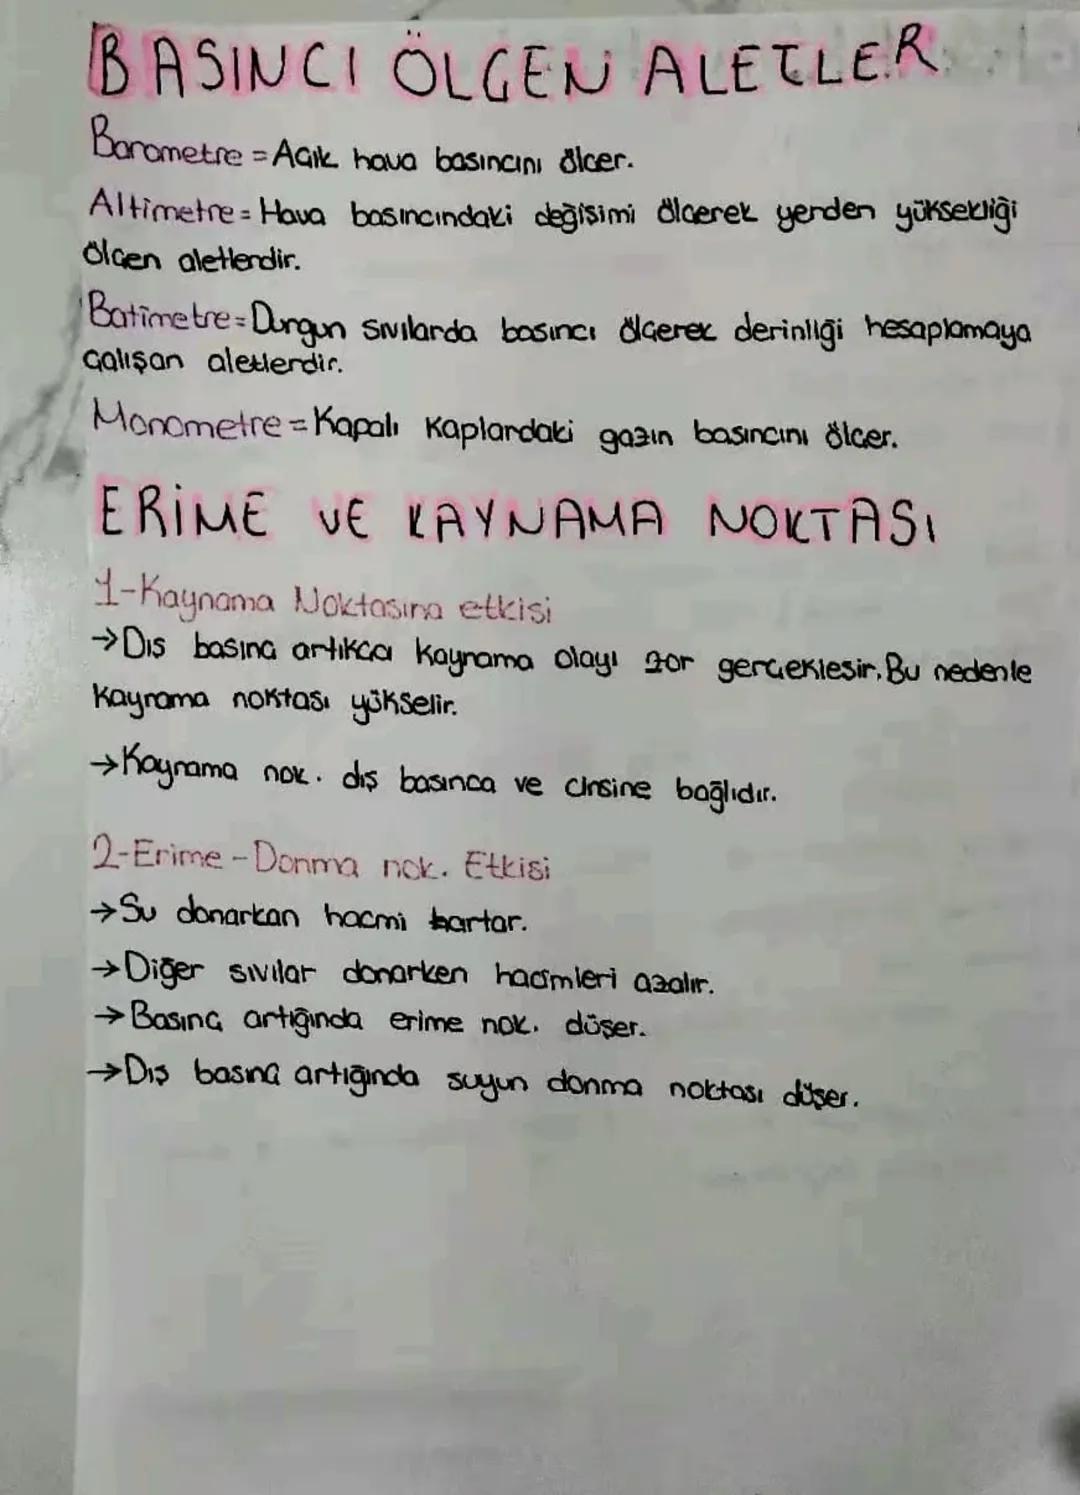 BASINCI ÖLÇEN ALETLER
Barometre = Açık hava basıncını ölçer.
Altimetre = Hava basıncındaki değişimi ölçerek yerden yüksekliği
ölçen aletlerdir.
Batimetre = Durgun sıvılarda basıncı ölçerek derinliği hesaplamaya
çalışan aletlerdir.
Monometre = Kapalı kaplardaki gazın basıncını ölçer.
ERİME VE KAYNAMA NOKTASI
1-Kaynama Noktasına etkisi
→Dış basınç artıkça kaynama olayı zor gerçekleşir. Bu nedenle
kaynama noktası yükselir.
→Kaynama nok. dış basınca ve cinsine bağlıdır.
2-Erime-Donma nok. Etkisi
→Su donarkan hacmi artar.
→Diğer sıvılar donarken hacimleri azalır.
→Basınç artığında erime nok. düşer.
→Dış basınç artığında suyun donma noktası düşer.